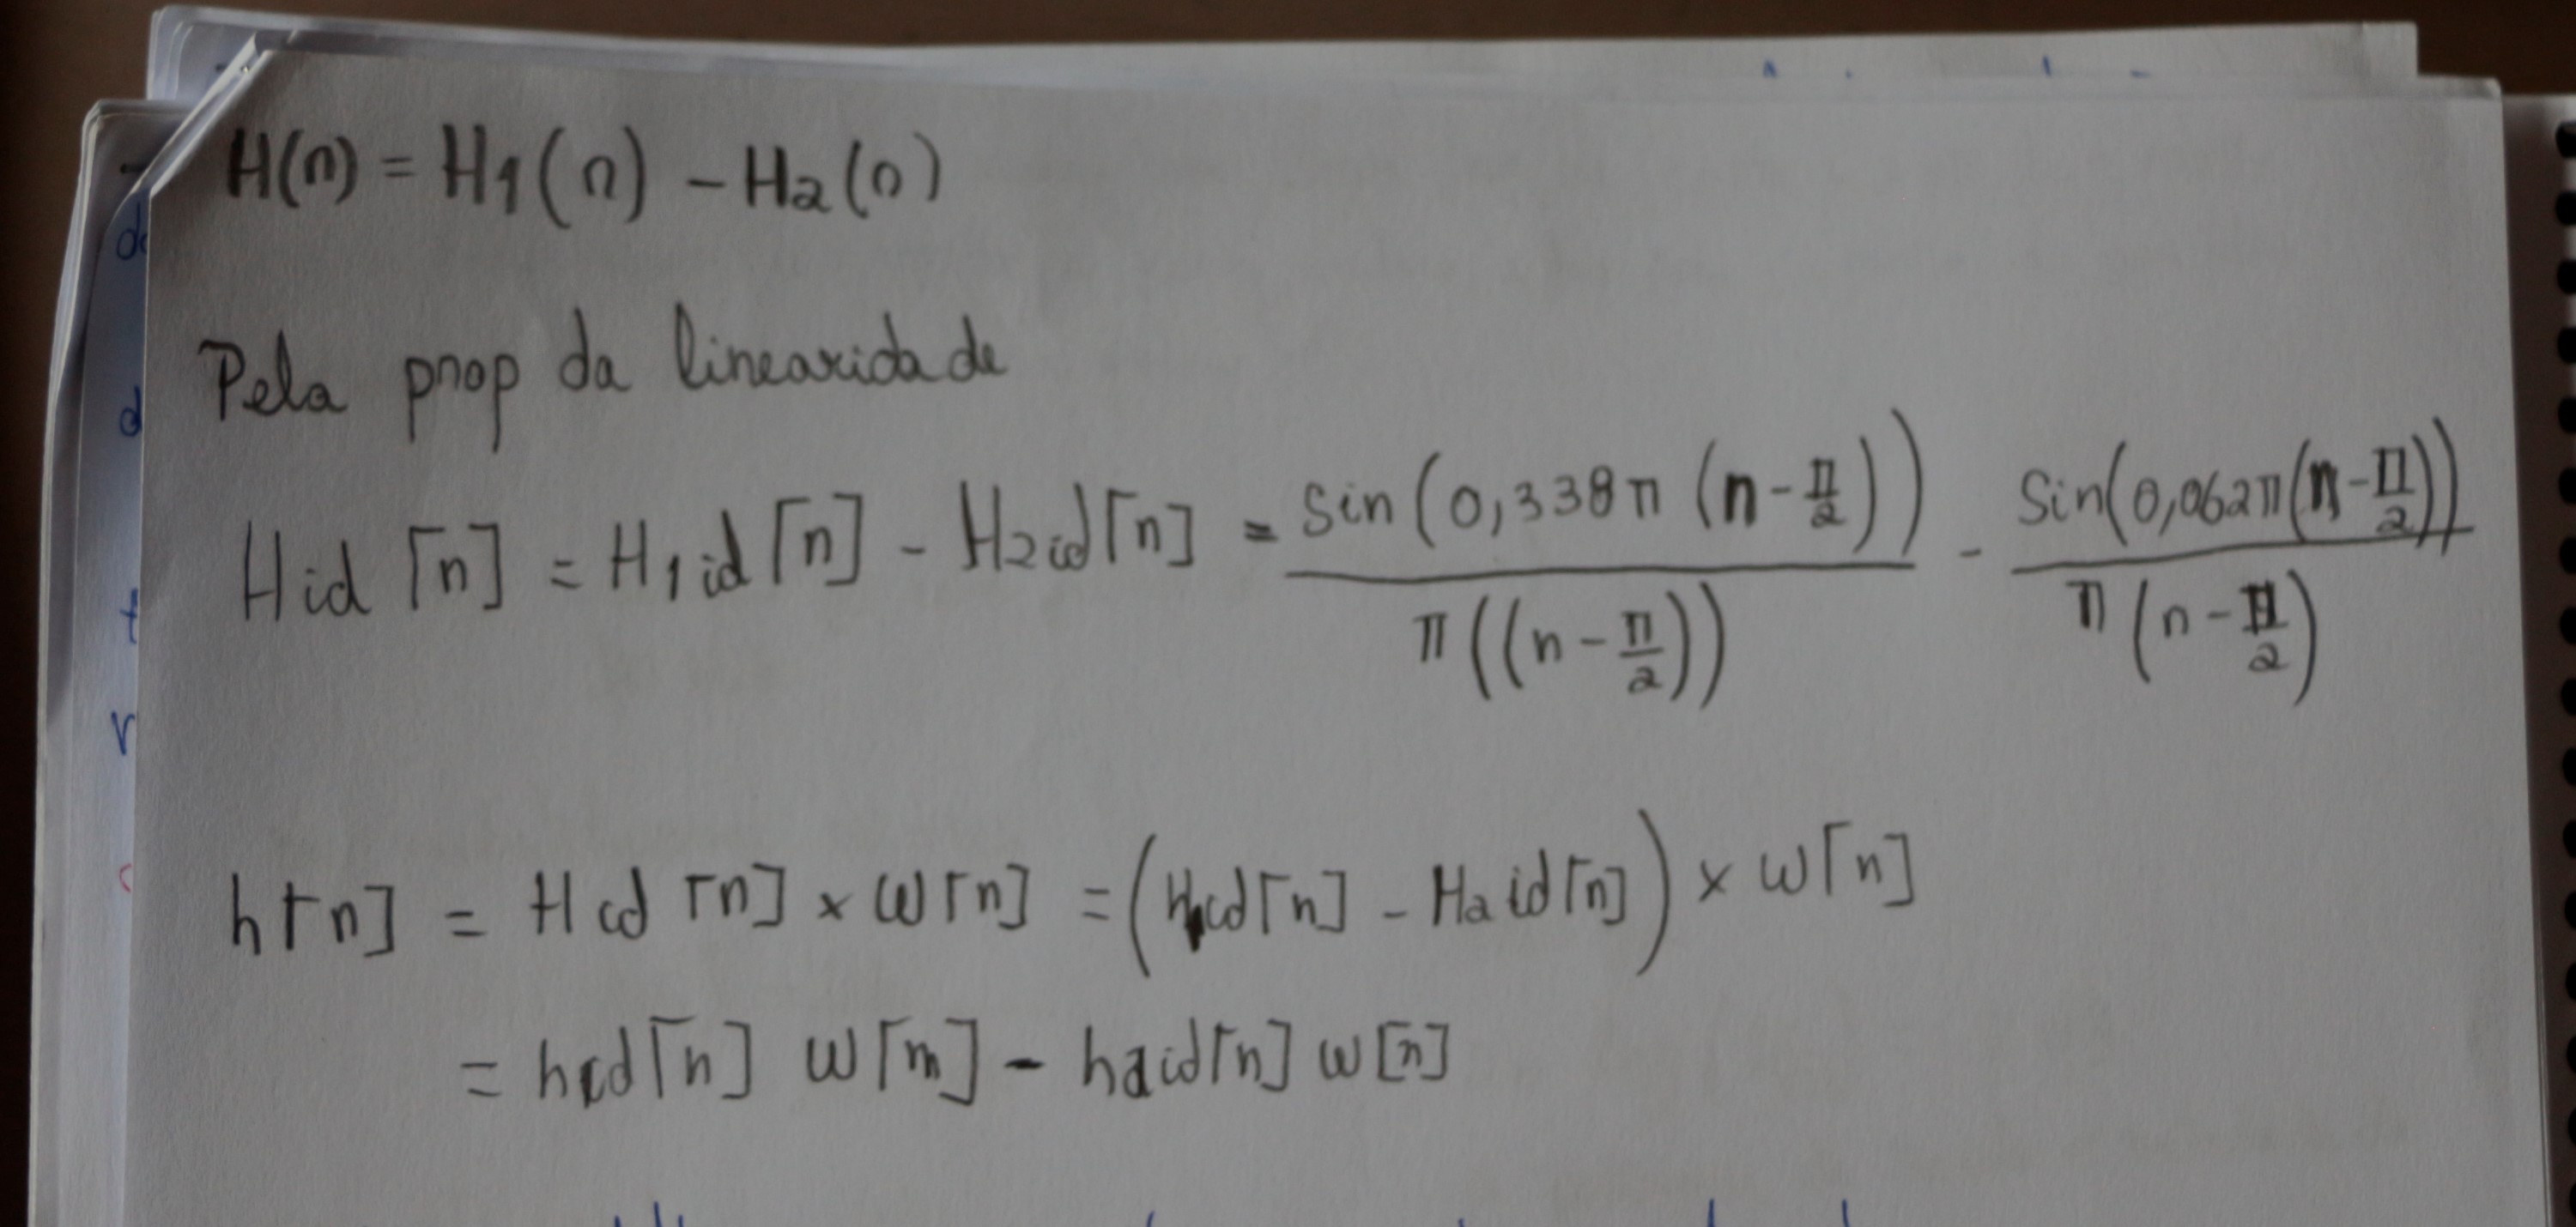 H(n) = H1(n) - H2(n)
Pela prop da linearidade
Hid [n] = H1id [n] - H2id[n] = sin(0,338π (n-π/2)) / π((n-π/2)) - Sin(0,062π(n-π/2)) / π(n-π/2)
h[n] = Hid [n] x W[n] = (H1id[n] - H2id[n]) x W[n]
= h1id[n] W[n] - h2id[n] W[n]